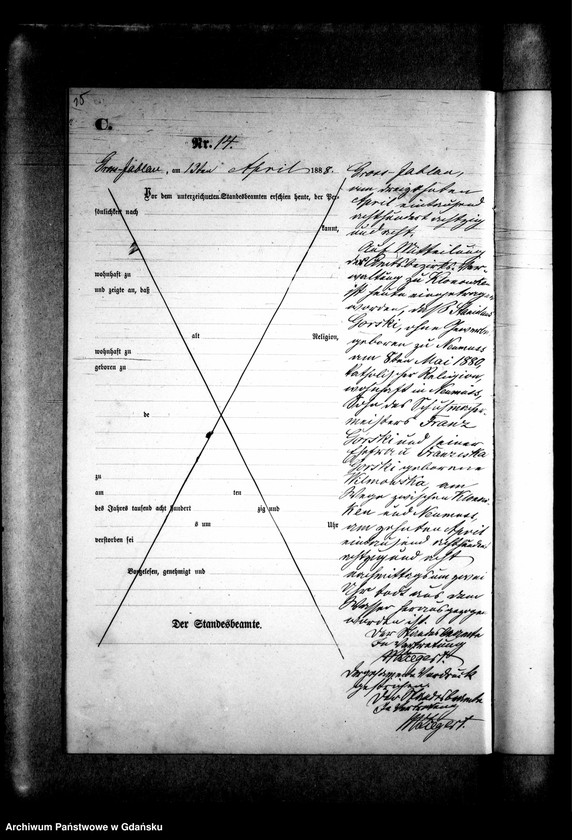 15
C.
Nr. 14.
Gross-Jablau, am 13ten April 1888.
Vor dem unterzeichneten Standesbeamten erschien heute, der Per-
sönlichkeit nach
kannt,
wohnhaft zu
und zeigte an, daß
alt Religion,
wohnhaft zu
geboren zu
de
zu
am ten
des Jahres tausend acht hundert zig und
s um Uhr
verstorben sei
Vorgelesen, genehmigt und
Der Standesbeamte.
Gross Jablau,
am dreizehnten
April eintausend
achthundert achtzig
und acht.
Auf Mitteilung
des Amtsbezirks Ver-
waltung zu
ist heute eingetragen
worden, daß Stanislaus
Gorski, ohne Gewerbe
geboren zu Neumuss
am 8ten Mai 1880,
katholischer Religion,
wohnhaft in Neumuss,
Sohn des Schuhmacher-
meisters Franz
Gorski und seiner
Ehefrau Franziska
Gorski geborene
am
Wege zwischen
und Neumuss,
am zehnten April
eintausend achthundert
achtzig und acht
nachmittags um zwei
Uhr todt aus dem
Wasser herausgezogen
worden ist.
Der Standesbeamte
In Vertretung
Vordruck
gestrichen.
Der Standesbeamte
In Vertretung
Archiwum Państwowe w Gdańsku